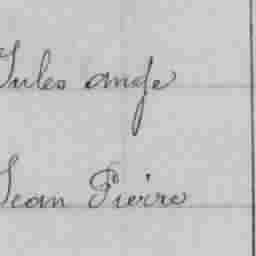 Jules ange
Jean Pierre